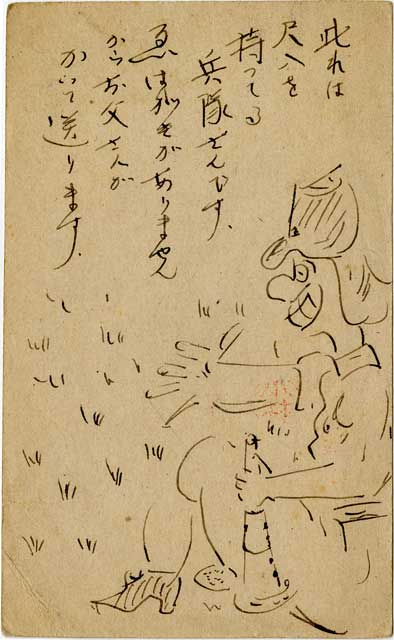 此れは
尺八を
持ってる
兵隊さんです、
ゑはがきがありません
からお父さんが
かいて送ります、